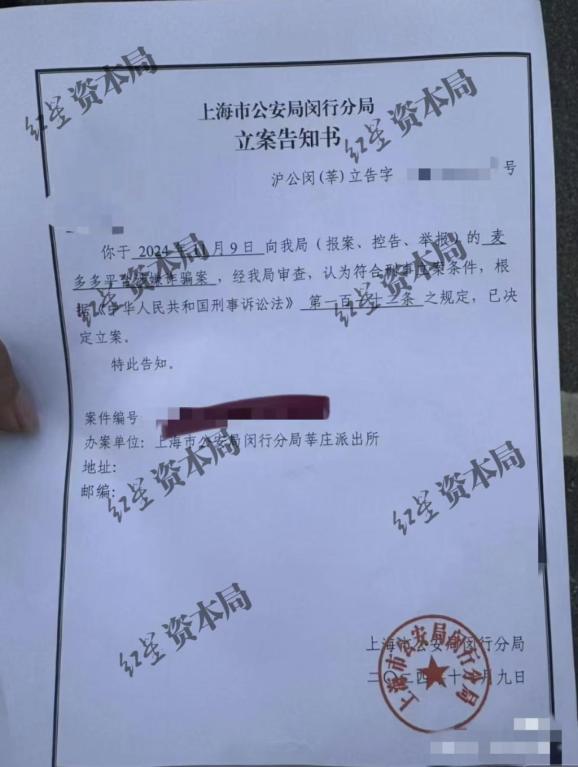 上海市公安局闵行分局
立案告知书
沪公闵(莘)立告字 号
你于 2024年11月9日 向我局(报案、控告、举报)的 麦
多多平台 诈骗案,经我局审查,认为符合刑事立案条件,根
据《中华人民共和国刑事诉讼法》 第一百 十二条 之规定,已决
定立案。
特此告知。
案件编号
办案单位:上海市公安局闵行分局莘庄派出所
地址:
邮编:
上海市公安局闵行分局
二〇二四 十 月九日
上海市公安局闵行分局
红星资本局
红星资本局
红星资本局
红星资本局
红星资本局
红星资本局
红星资本局
红星资本局